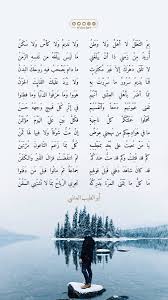 بِمَ التَّعَلُّلُ لا أَهْلٌ وَلا وَطَنُ وَلا نَدِيمٌ وَلا كَأْسٌ وَلا سَكَنُ
أُرِيدُ مِنْ زَمَنِي ذَا أَنْ يُبَلِّغَنِي مَا لَيْسَ يَبْلُغُهُ مِنْ نَفْسِهِ الزَّمَنُ
لا تَلْقَ دَهْرَكَ إِلّا غَيْرَ مُكْتَرِثٍ مَا دَامَ يَصْحَبُ فِيهِ رُوحَكَ الْبَدَنُ
فَمَا يَدُومُ سُرُورُ مَا سُرِرْتَ بِهِ وَلا يَرُدُّ عَلَيْكَ الْفَائِتَ الْحَزَنُ
مِمَّا أَضَرَّ بِأَهْلِ الْعِشْقِ أَنَّهُمُ هَوَوْا وَمَا عَرَفُوا الدُّنْيَا وَمَا فَطِنُوا
تَفْنَى عُيُونُهُمُ دَمْعًا وَأَنْفُسُهُمْ فِي إِثْرِ كُلِّ قَبِيحٍ وَجْهُهُ حَسَنُ
مَا فِي هَوَادِجِكُمْ مِنْ مُهْجَتِي عِوَضٌ إِنْ مُتُّ شَوْقًا وَلا فِيهَا لَهَا ثَمَنُ
كَمْ قَدْ قُتِلْتُ وَكَمْ قَدْ مُتُّ عِنْدَكُمُ ثُمَّ انْتَفَضْتُ فَزَالَ الْقَبْرُ وَالْكَفَنُ
قَدْ كَانَ شَاهَدَ دَفْنِي قَبْلَ قَوْلِهِمُ جَمَاعَةٌ ثُمَّ مَاتُوا قَبْلَ مَنْ دَفَنُوا
مَا كُلُّ مَا يَتَمَنَّى الْمَرْءُ يُدْرِكُهُ تَجْرِي الرِّيَاحُ بِمَا لا تَشْتَهِي السُّفُنُ
أبو الطيب المتنبي